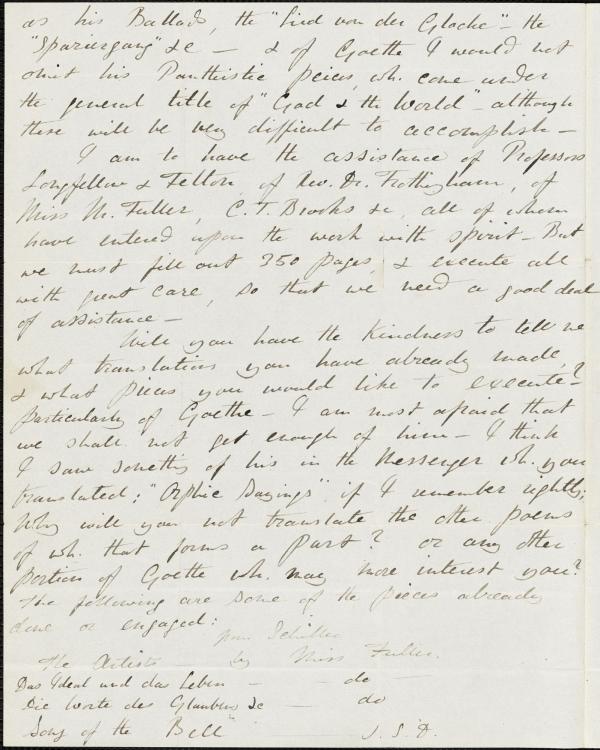 as his Ballads, the "Lied von der Glocke" - the
"Spaziergang" &c — & of Goethe I would not
omit his Pantheistic pieces, wh. come under
the general title of "God & the World" - although
these will be very difficult to accomplish —
I am to have the assistance of Professors
Longfellow & Felton, of Rev. Dr. Frothingham, of
Miss M. Fuller, C. T. Brooks &c, all of whom
have entered upon the work with spirit - But
we must fill out 350 pages, & execute all
with great care, so that we need a good deal
of assistance —
Will you have the kindness to tell me
what translations you have already made,
& what pieces you would like to execute? -
Particularly of Goethe - I am most afraid that
we shall not get enough of him - I think
I saw something of his in the Messenger wh. you
translated; "Orphic Sayings" if I remember rightly;
Why will you not translate the other poems
of wh. that forms a part? or any other
portion of Goethe wh. may more interest you?
The following are some of the pieces already
done or engaged:
from Schiller
The Artists — by Miss Fuller.
Das Ideal und das Leben — do
Die Worte des Glaubens &c — do
Song of the Bell" J. S. D.